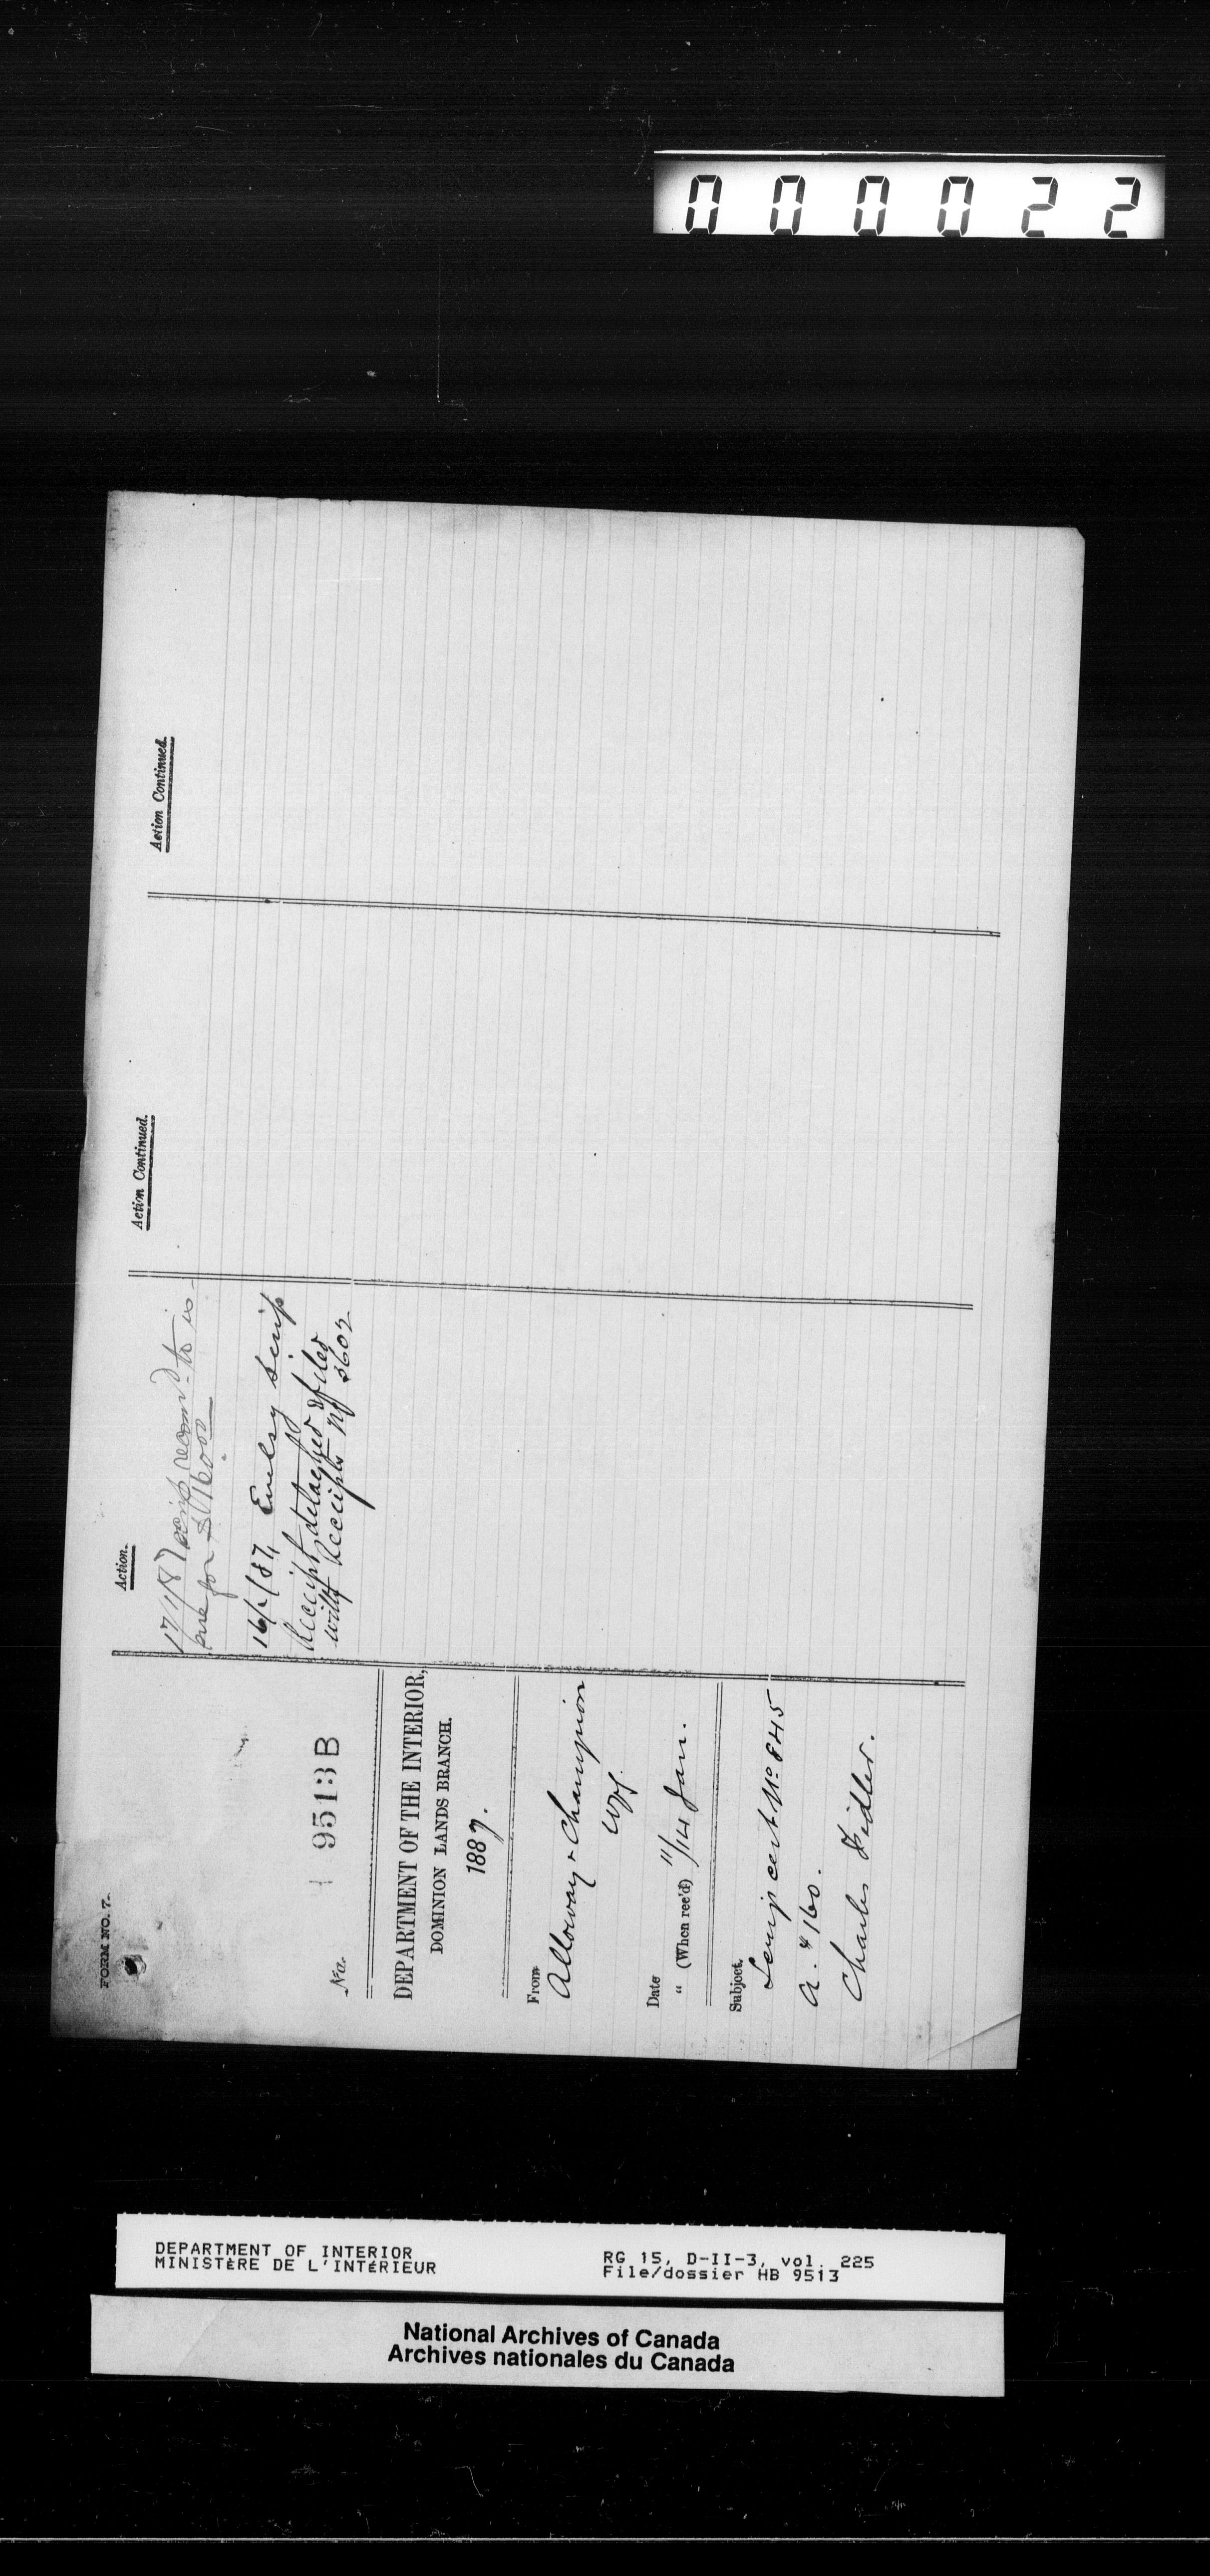 000022
FORM NO. 7.
No. 9513 B
DEPARTMENT OF THE INTERIOR,
DOMINION LANDS BRANCH.
1887.
From
Alloway & Champion
Wpg.
Date 11/14 Jan.
" (When rec'd)
Subject,
Scrip cert No 845
A. $160.
Charles Fidler.
Action.
17/1/87 scrip recomd. to is-
sue for $160.00
16/2/87, Emley scrip
Receipt detached & filed
with Receipts No 3602
Action Continued.
Action Continued.
DEPARTMENT OF INTERIOR
MINISTÈRE DE L'INTÉRIEUR
RG 15, D-II-3, vol. 225
File/dossier HB 9513
National Archives of Canada
Archives nationales du Canada